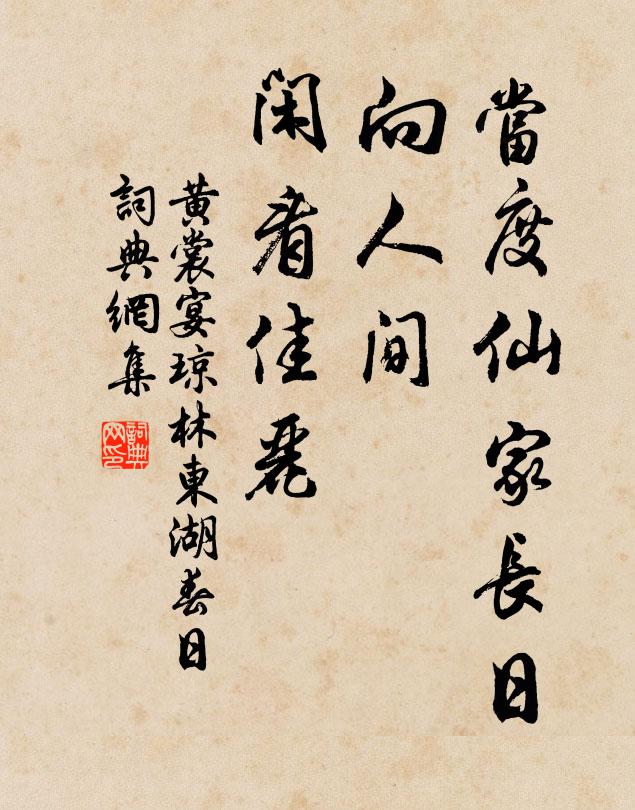 當度仙家長日
向人間
閑看佳麗
黃裳宴瓊林東湖春日
詞典網集
詞典網印